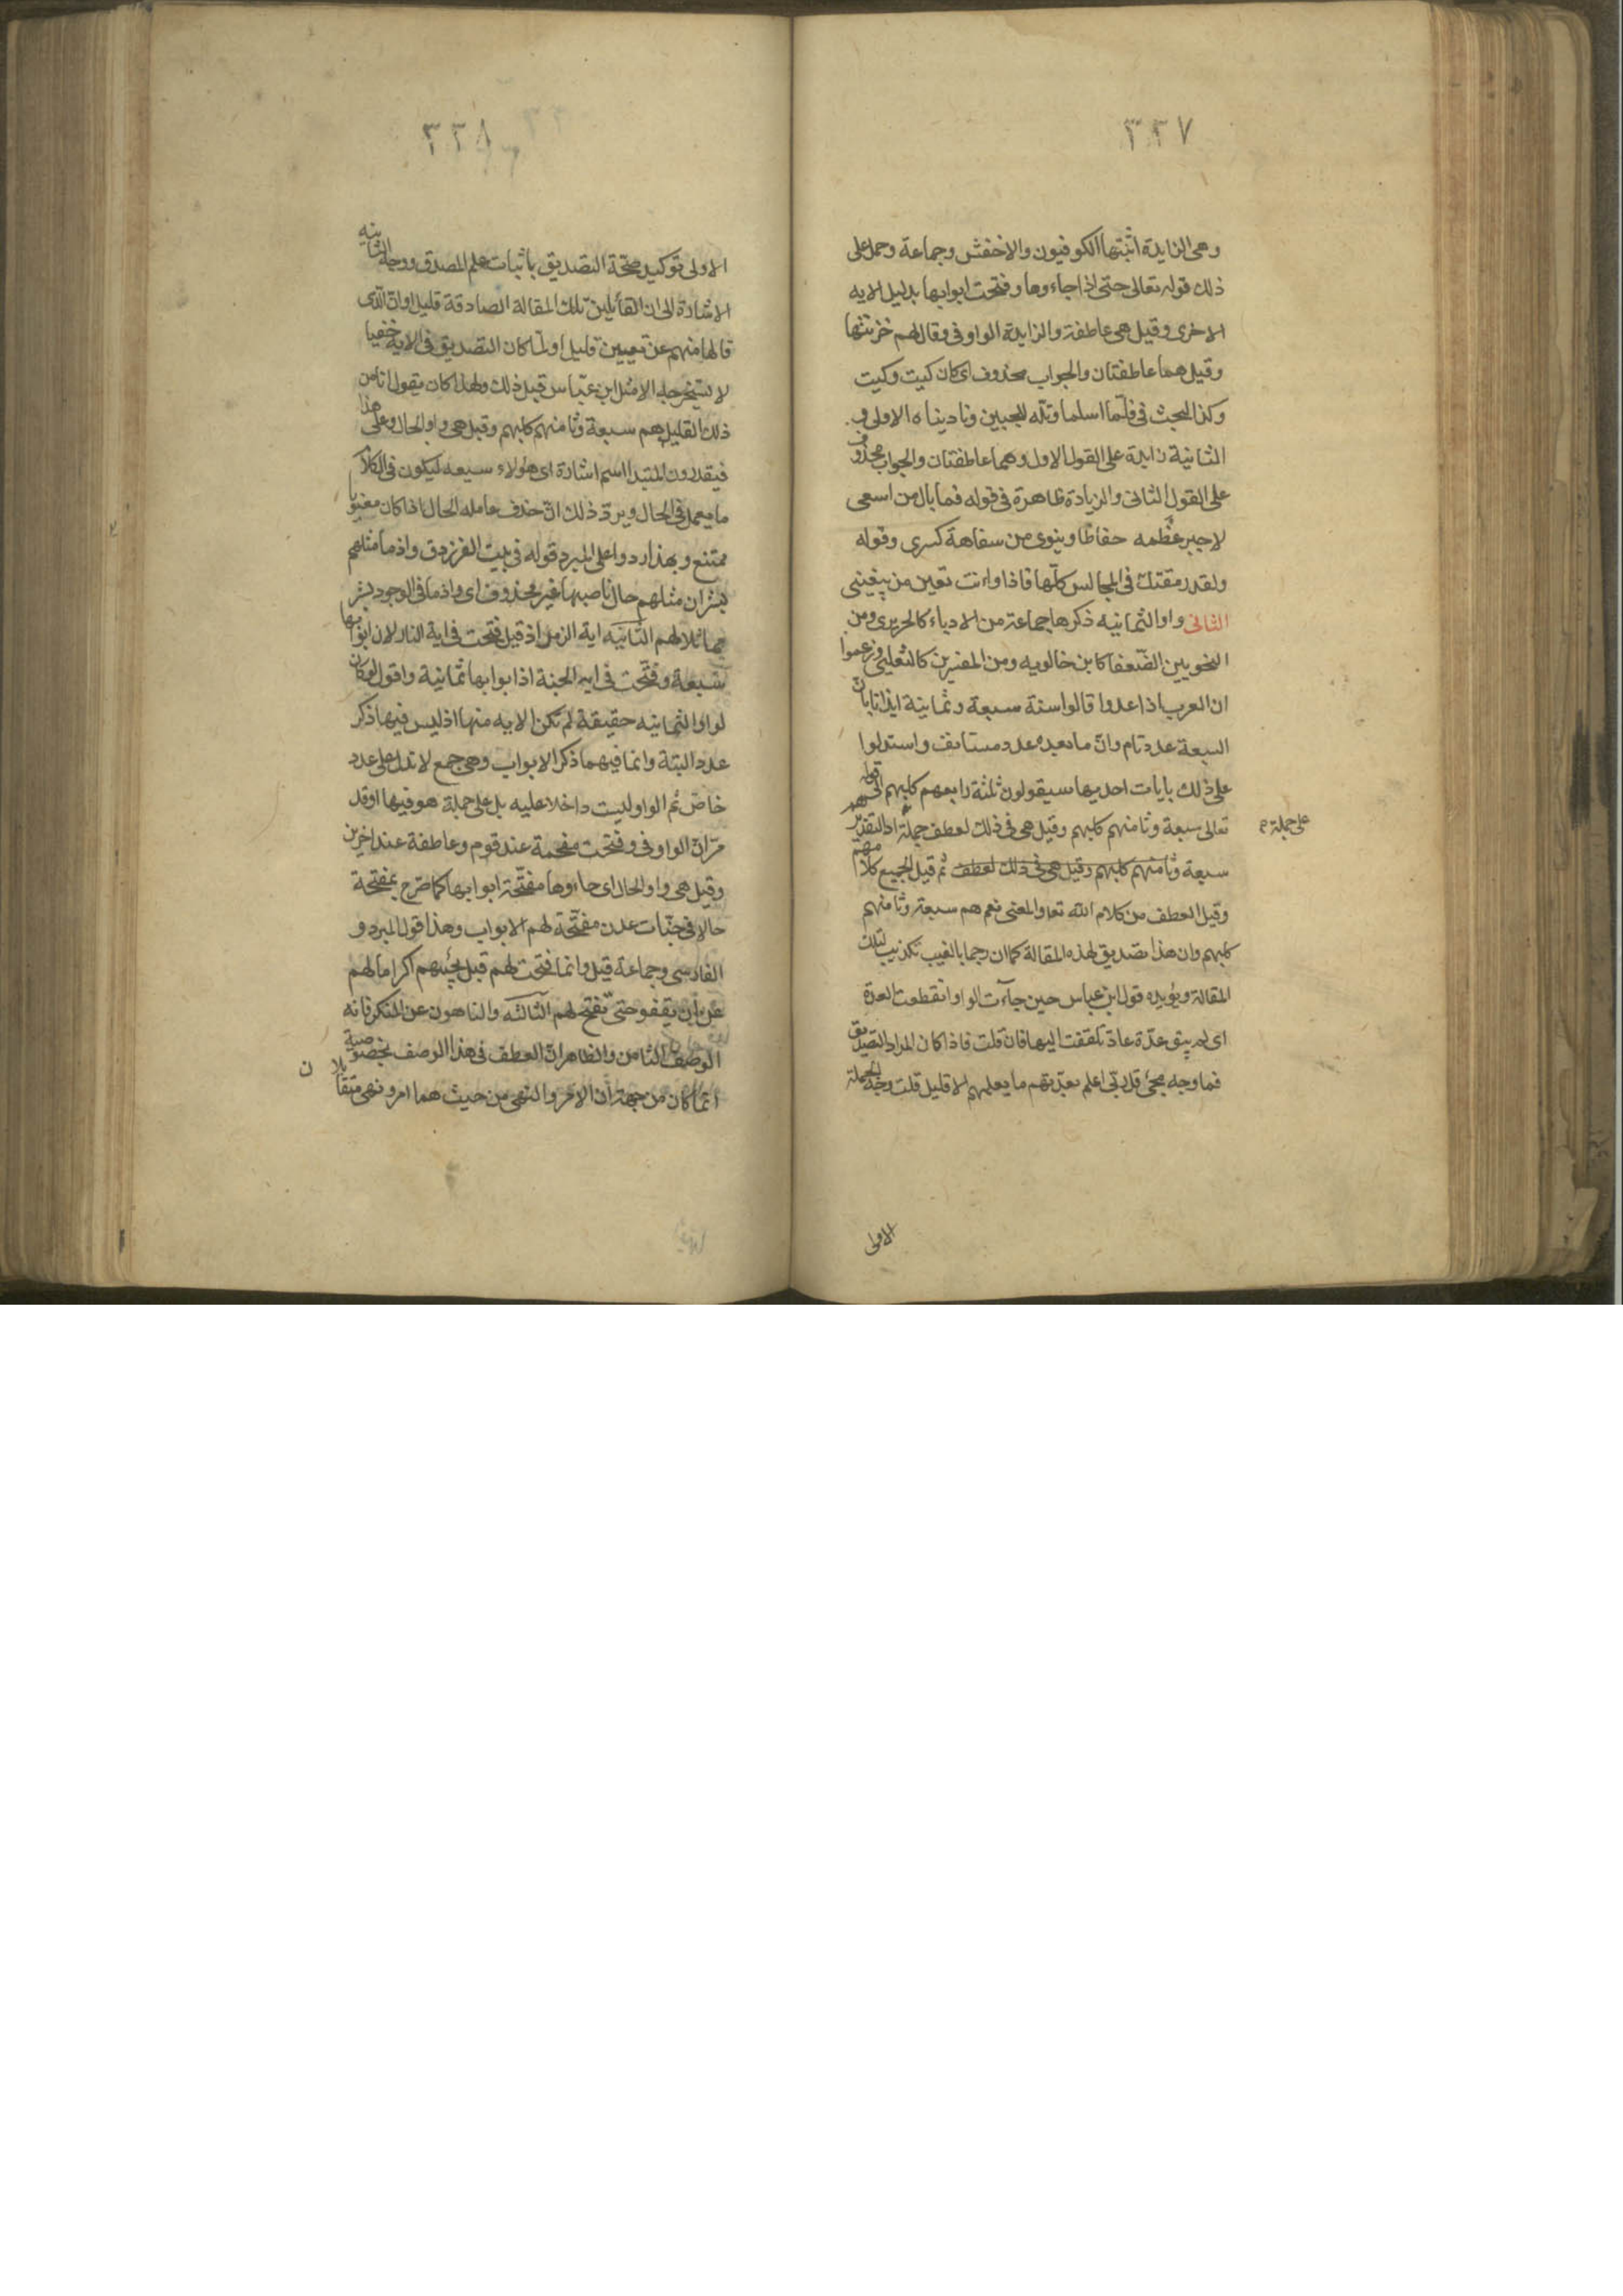 ٣٣٧
وهى الزايدة اثبتها الكوفيون والاخفش وجماعة وحمل على
ذلك قوله تعالى حتى اذا جاءوها وفتحت ابوابها بدليل الايه
الاخرى وقيل هى عاطفة والزايدة الواو فى وقال لهم خزنتها
وقيل هما عاطفتان والجواب محذوف اى كان كيت وكيت
وكذا البحث فى فلمّا اسلما وتلّه للجبين وناديناه الاولى او
الثانية زايدة على القول الاول وهما عاطفتان والجواب محذوف
على القول الثانى والزيادة ظاهرة فى قوله فما بال من اسعى
لاجبر عظمه حفاظا وينوى من سفاهة كسرى وقوله
ولقد رمقتك فى المجالس كلّها فاذا وانت تعين من يبغينى
الثانى واو الثمانيه ذكرها جماعة من الادباء كالحريرى ومن
النحويين الضعفا كابن خالويه ومن المفسرين كالثعلبى وزعموا
ان العرب اذا عدوا قالوا ستة سبعة وثمانية ايذانا بان
السبعة عدد تام وانّ ما بعده عدد مستانف واستدلوا
على ذلك بايات احديها سيقولون ثلثة رابعهم كلبهم الى قوله
تعالى سبعة وثامنهم كلبهم وقيل هى فى ذلك لعطف جملة اذ التقدير هم
على جملة
سبعة وثامنهم كلبهم وقيل هى فى ذلك لعطف ثم قيل الجميع كلامهم
وقيل العطف من كلام الله تعا والمعنى نعم هم سبعة وثامنهم
كلبهم وان هذا تصديق لهذه المقالة كما ان رجما بالغيب تكذيب لتلك
المقالة ويؤيده قول ابن عباس حين جاءت الواو انقطعت العدة
اى لم يبق عدّة عادّ يلتفت اليها فان قلت فاذا كان المراد التصديق
فما وجه مجئ قل ربّى اعلم بعدّتهم ما يعلمهم الا قليل قلت وجه الجملة
الاولى
٣٣٨
الاولى توكيد صحّة التصديق باثبات علم المصدق ووجه الثانيه
الاشارة الى ان القائلين تلك المقالة الصادقة قليل او انّ الّذى
قالها منهم عن تعيين قليل او لمّا كان التصديق فى الاية خفيا
لا يستخرجه الا مثل ابن عبّاس قيل ذلك ولهذا كان يقول انا من
ذلك القليل هم سبعة وثامنهم كلبهم وقيل هى واو الحال وعلى هذا
فيقدرون المبتدا اسم اشارة اى هؤلاء سبعه ليكون فى الكلام
ما يعمل فى الحال ويردّ ذلك انّ حذف عامل الحال اذا كان معنويا
ممتنع وبهذا ردوا على المبرد قوله فى بيت الفرزدق واذ ما مثلهم
بشر ان مثلهم حال ناصبها غير محذوف اى واذ ما فى الوجود بشر
مماثلا لهم الثّانيه اية الزمر اذ قيل فتحت فى اية النار لان ابوابها
سبعة وفتّحت فى ايه الجنة اذ ابوابها ثمانية واقول لو كان
لواو الثمانيه حقيقة لم تكن الايه منها اذ ليس فيها ذكر
عدد البتة وانما فيهما ذكر الابواب وهى جمع لا تدل على عدد
خاصّ ثم الواو ليست داخلا عليه بل على جملة هو فيها وقد
مرّ انّ الواو فى وفتحت مقحمة عند قوم وعاطفة عند اخرين
وقيل هى واو الحال اى جاءوها مفتّحة ابوابها كما صرّح بمفتحة
حالا فى جنّات عدن مفتّحة لهم الابواب وهذا قول المبرد و
الفارسى وجماعة قيل وانما فتحت لهم قبل مجيئهم اكراما لهم
عن ان يقفو حتىّ تفتح لهم الثالثه والناهون عن المنكر فانه
الوصف الثامن والظاهر انّ العطف فى هذا الوصف بخصوصية
انّما كان من جهة ان الامر والنهى من حيث هما امر ونهى متقابلان